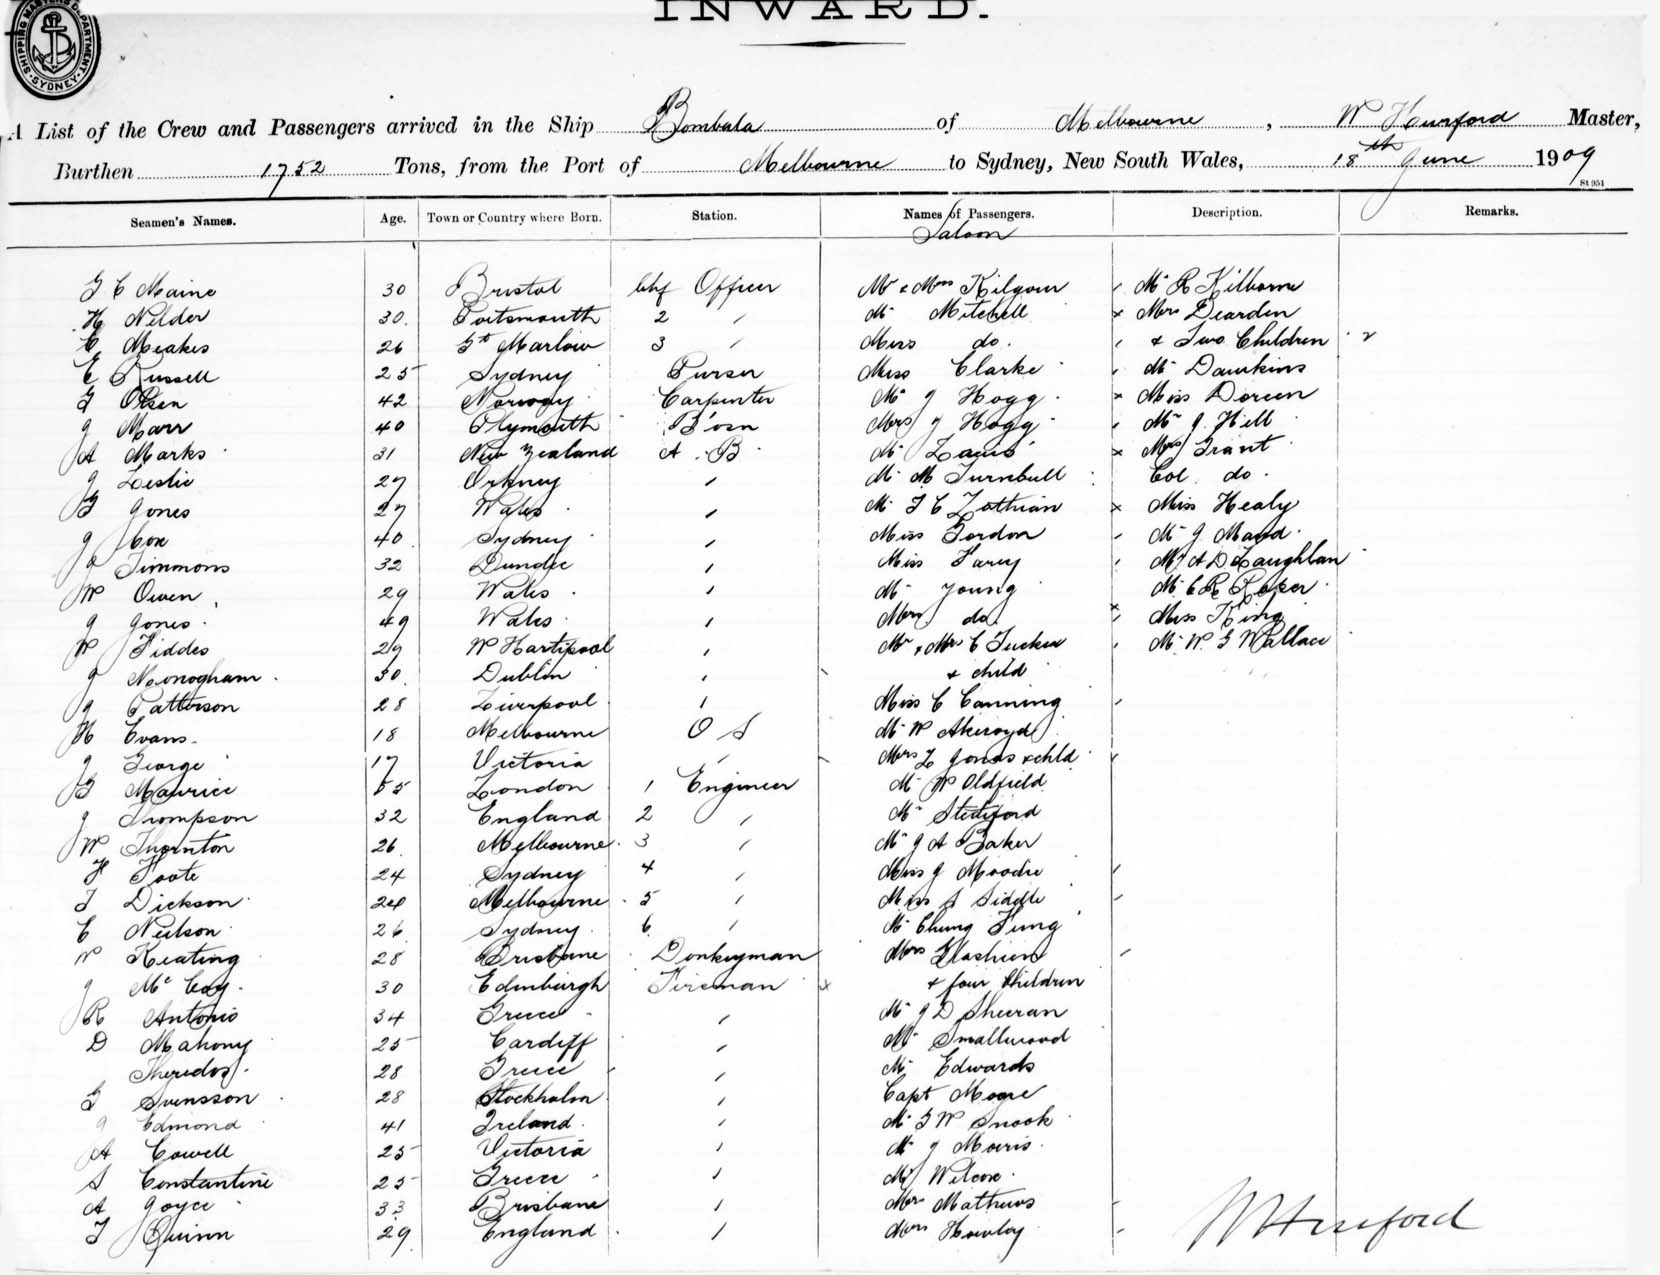 SHIPPING MASTERS DEPARTMENT. SYDNEY
INWARD.
A List of the Crew and Passengers arrived in the Ship Bombala of Melbourne, W Hurford Master,
Burthen 1752 Tons, from the Port of Melbourne to Sydney, New South Wales, 18th June 1909
St 951
Seamen's Names. Age. Town or Country where Born. Station. Names of Passengers. Description. Remarks.
Saloon
30 Bristol Chf Officer Mr & Mrs Kilgour Mr R Kilborne
H Nelder 30 Portsmouth 2 " Mr Mitchell Mrs Dearden
C Meakes 26 Gt Marlow 3 " Miss do. & Two Children
E Russell 25 Sydney Purser Miss Clarke Mr Dawkins
Olsen 42 Norway Carpenter Mr J Hogg Miss Doreen
J Marr 40 Plymouth B'osn Mrs J Hogg Mr J. Hill
A Marks 31 New Zealand A. B. Mr Mrs Grant
J Leslie 27 Orkney " Mr M Turnbull Col. do.
Jones 27 Wales " Mr Lothian Miss Healy
J Cox 40 Sydney " Miss Gordon Mr J
Timmons 32 Dundee " Miss Mr A D Laughlan
W Owen 29 Wales " Mr Young Mr C R Roper
J Jones 49 Wales " Mrs do. Miss King
W Fiddes 29 W Hartlepool " Mr & Mrs C Tucker Mr W. G Wallace
J Monogham 30 Dublin " & child
J Patterson 28 Liverpool " Miss C Canning
H Evans 18 Melbourne O S Mr W Akeroyd
J George 17 Victoria " Mrs L Jones & chld
G Maurice 55 London 1 Engineer Mr W Oldfield
J Thompson 32 England 2 " Mr
W Thornton 26 Melbourne 3 " Mr J A Baker
F Foote 24 Sydney 4 " Miss J Moodie
Dickson 24 Melbourne 5 " Miss S Siddle
C Neilson 26 Sydney 6 " Mr Chung Fung
W Keating 28 Brisbane Donkeyman Mrs
J McCoy 30 Edinburgh Fireman & four Children
R Antonio 34 Greece " Mr J D Sheeran
D Mahony 25 Cardiff " Mr Smallwood
28 Greece " Mr Edwards
G Svensson 28 Stockholm " Capt Moore
J Edmond 41 Ireland " Mr G W Snook
A Cowell 25 Victoria " Mr J Morris
S Constantine 25 Greece " Mr Wilcox
A Joyce 33 Brisbane " Mrs Mathews
T Quinn 29 England " Mrs Howley
W Hurford